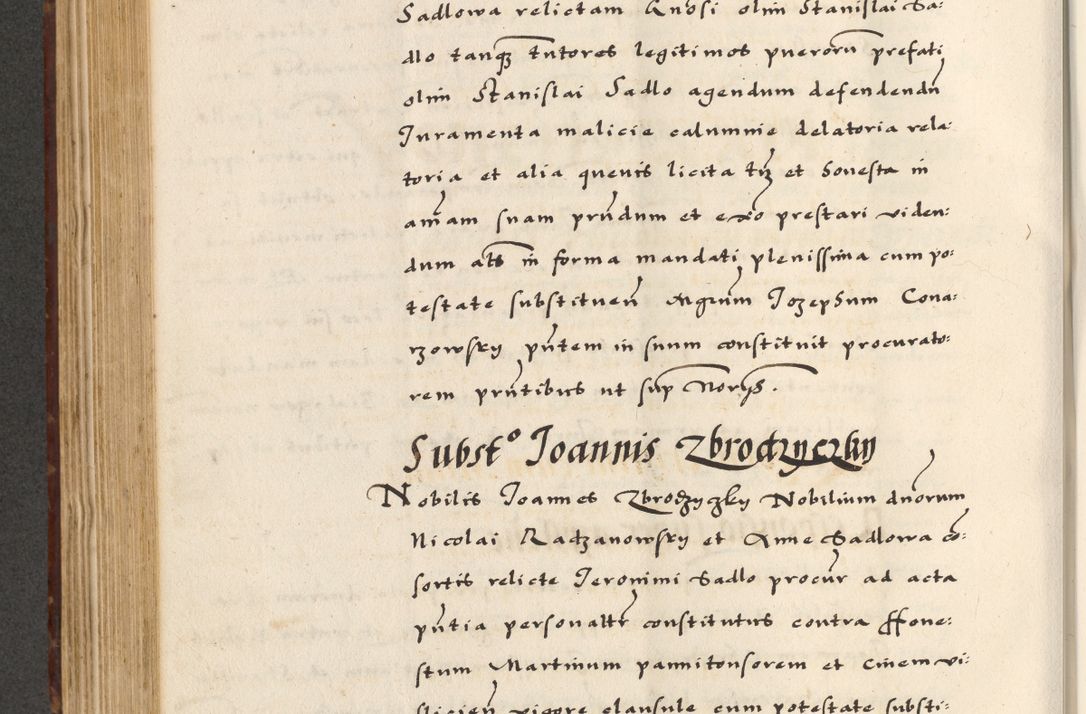 Sadlowa relictam Gnosi olim Stanislai Sa:
dlo tanq̃ʒ tutores legitimos puerorũ prefati
olim Stanislai Sadlo agendum defendendũ
Juramenta malicie calumnie delatoria rela:
toria et alia quevis licita tñ et honesta in
aĩam suam prñdum et exõ prestari viden:
dum ats̃ in forma mandati plenissima cum po:
testate substituen̄ Mgr̃um Jozephum Cona:
rzowsky pñtem in suum constituit procurato:
rem prñtibus ut sup̃ Norys̃.
Substᵒ Joannis Zbrodzyczky
Nobilis Joannes Zbrodzyczky Nobilium dnorum
Nicolai Radzanowsky et Anne Sadlowa cõ:
sortis relicte Jeronimi Sadlo procur̃ ad acta
pñtia personaltr̃ constitutus contra ffone:
stum Martinum pannitonsorem et Cinem vi:
slicien̄ vigore clausule cum potestate substi: